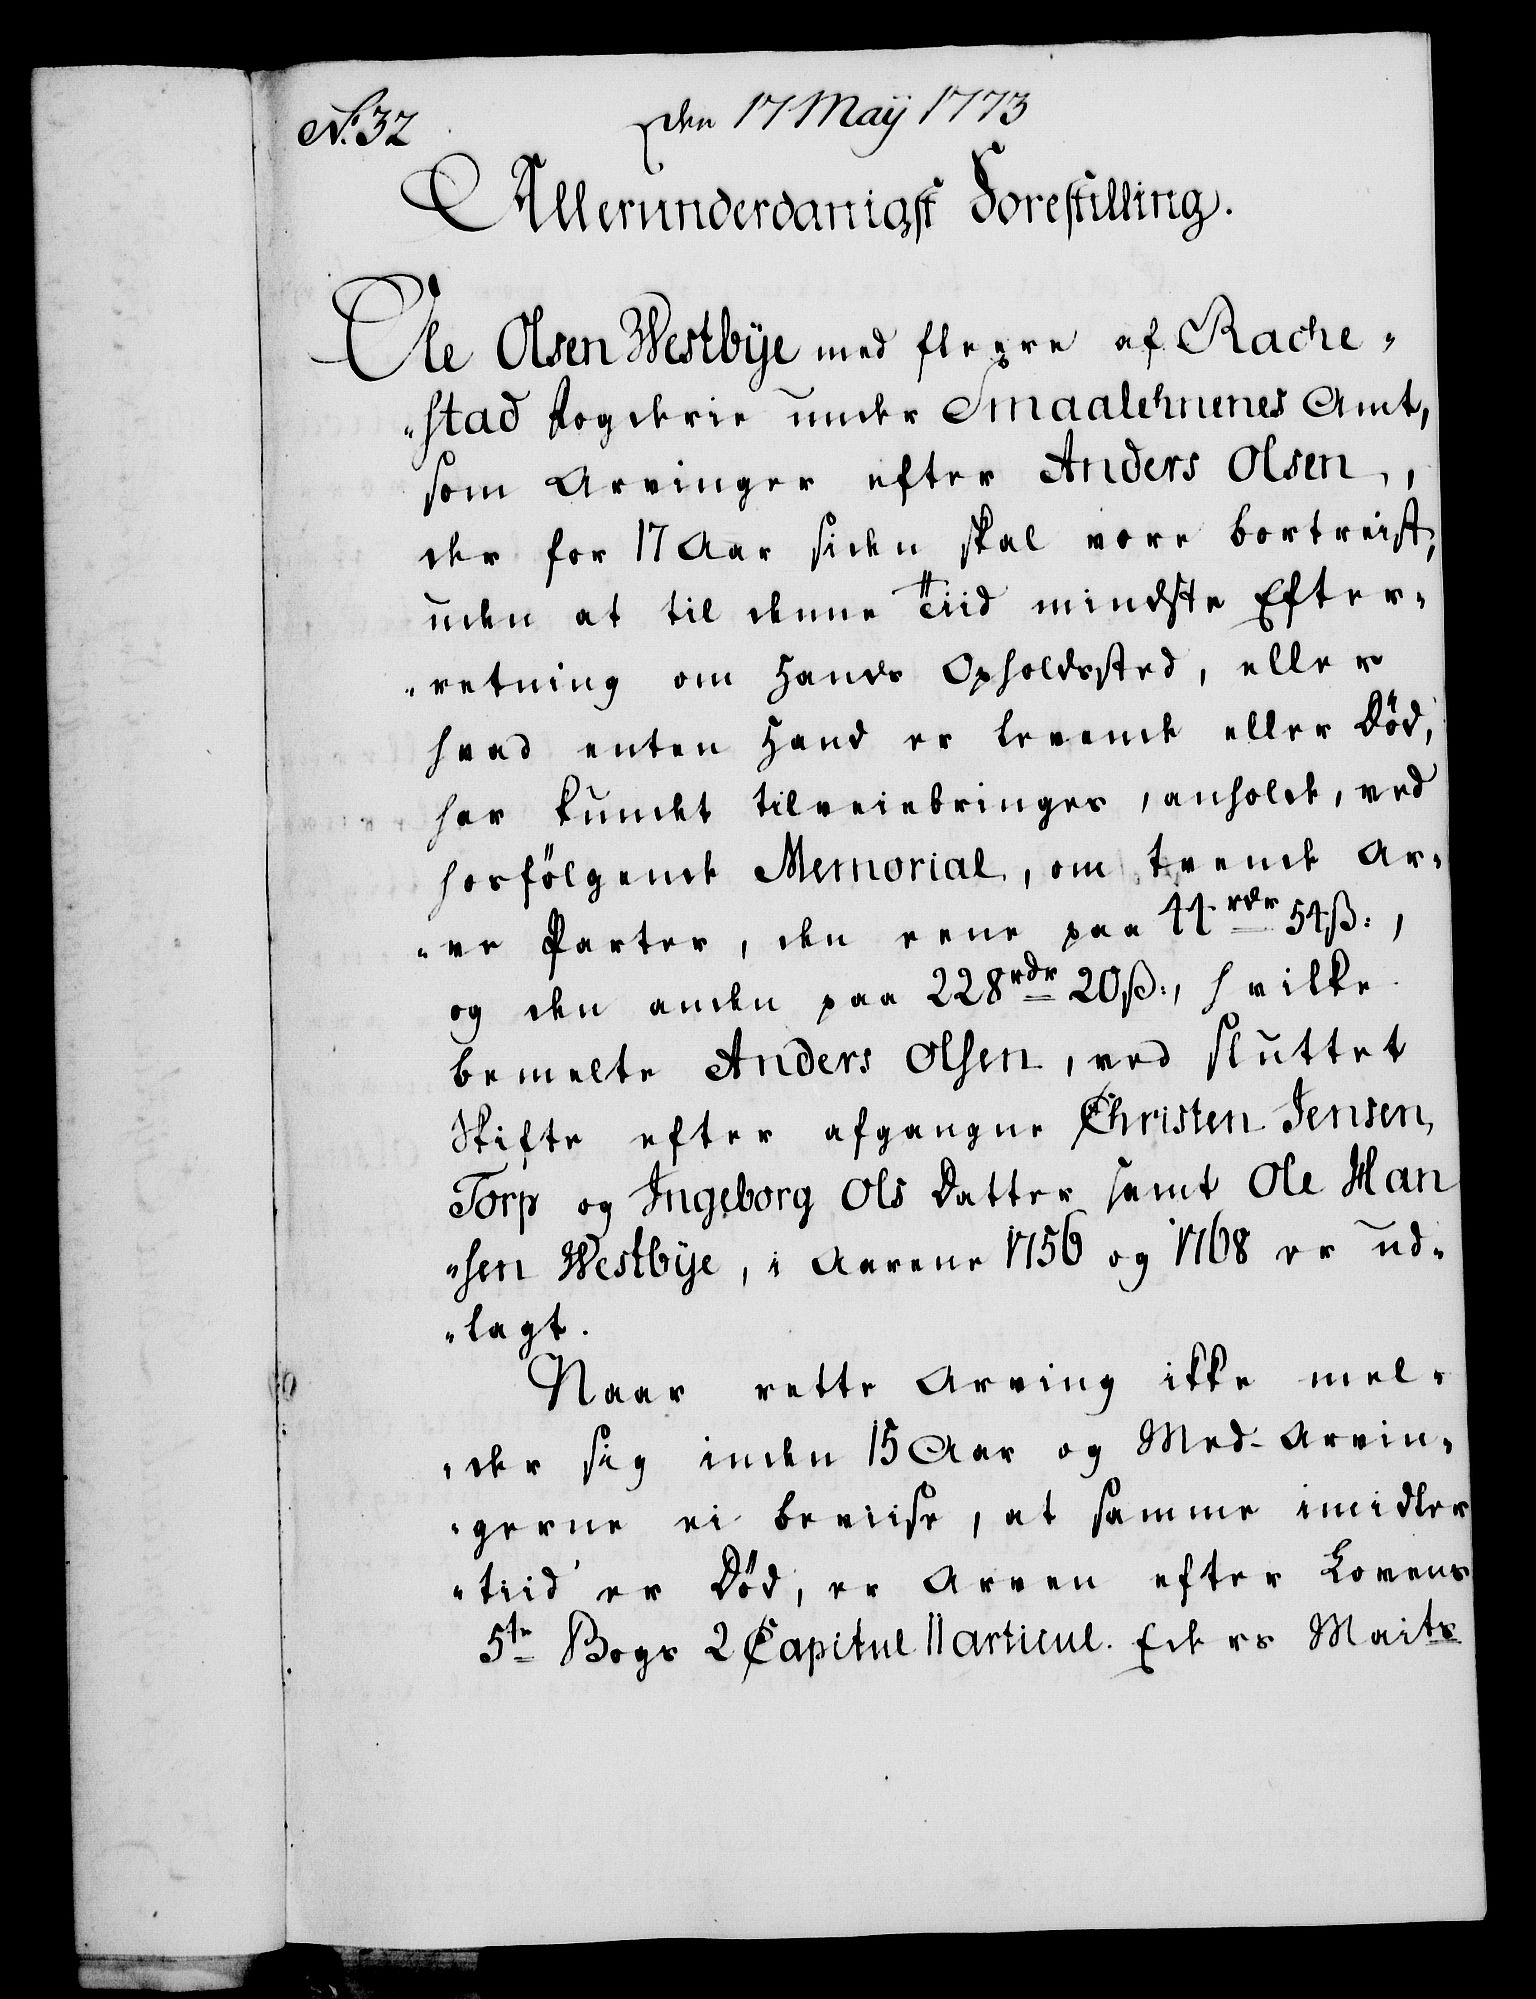 No. 32
Den 17 Maÿ 1773
Allerunderdanigst Forestilling.
Ole Olsen Westbÿe med fleere af Rache-
-stad Fogderie under Smaalehnenes Amt,
som Arvinger efter Anders Olsen,
der for 17 Aar siden skal være bortreist,
uden at til denne Tiid mindste Efter-
-retning om Hands Opholdssted, eller
hvad enten Hand er levende eller Död,
har kundet tilveiebringes, anholde, ved
hosfölgende Memorial, om tvende Ar-
-ve Parter, den eene paa 44 rdr 54 ß:,
og den anden paa 228 rdr 20 ß:, hvilke
bemelte Anders Olsen, ved sluttet
Skifte efter afgangne Christen Jensen
Torp og Ingeborg Ols Datter samt Ole Han
-sen Westbÿe, i Aarene 1756 og 1768 er ud-
-lagt.
Naar rette Arving ikke mel-
-der sig inden 15 Aar og Med-Arvin-
-gerne ei beviise, at samme imidler
-tiid er Död, er Arven efter Lovens
5te Bogs 2 Capitul 11 articul. Eders Maits